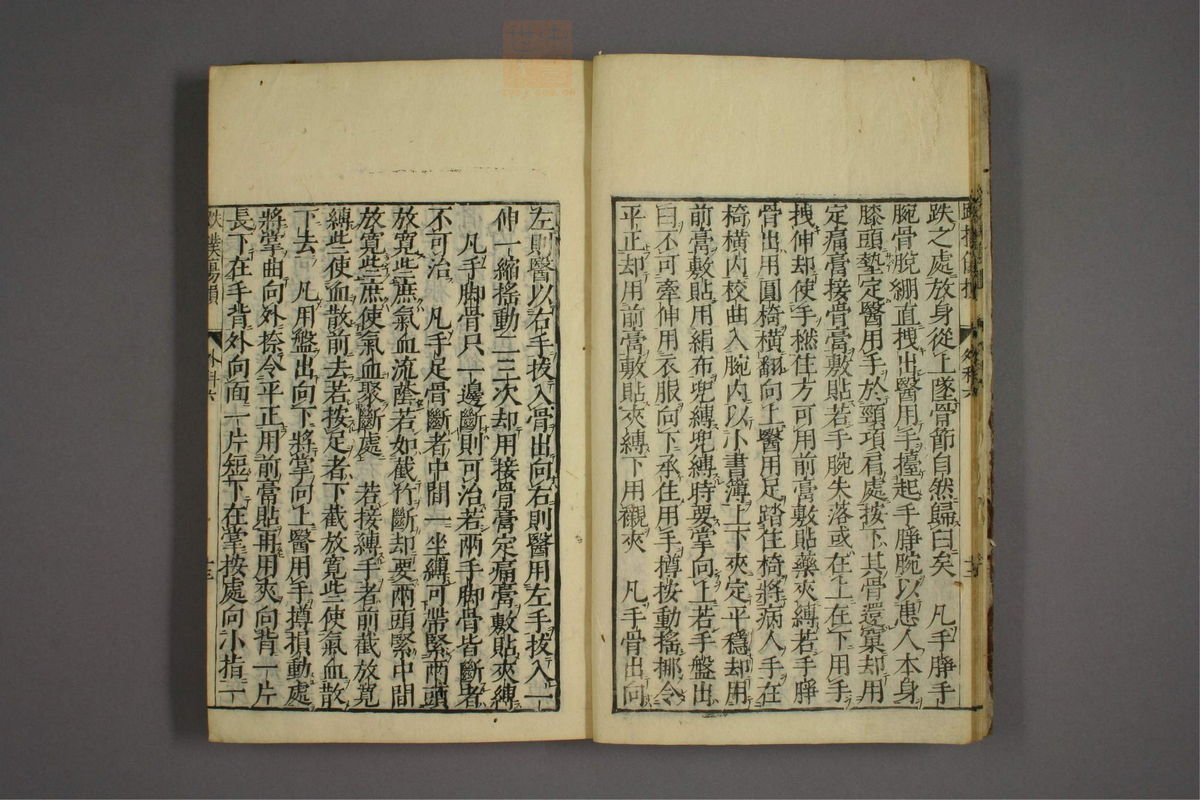 跌之處放身從上墜骨節自然歸臼矣　凡手臂手
腕骨脫綳直拽出醫用手擡起手臂腕以患人本身
膝頭墊定醫用手於頸項肩處按下其骨還窠却用
定痛膏接骨膏敷貼若手腕失落或在上在下用手
拽伸却使手撚住方可用前膏敷貼藥夾縛若手臂
骨出用圓椅橫翻向上醫用足踏住椅將病人手在
椅橫內校曲入腕內以小書簿上下夾定平穩却用
前膏敷貼用絹布兜縛兜縛時要掌向上若手盤出
臼不可牽伸用衣服向下承住用手撙按動搖挪令
平正却用前膏敷貼夾縛下用襯夾　凡手骨出向
左則醫以右手拔入骨出向右則醫用左手拔入一
伸一縮搖動二三次却用接骨膏定痛膏敷貼夾縛
凡手脚骨只一邊斷則可治若兩手脚骨皆斷者
不可治　凡手足骨斷者中間一坐縛可帶緊兩頭
放寬些庶氣血流蔭若如截竹斷却要兩頭緊中間
放寬些庶使氣血聚斷處　若接縛手者前截放寬
縛些使血散前去若按足者下截放寬些使氣血散
下去　凡用盤出向下將掌向上醫用手撙損動處
將掌曲向外捺令平正用前膏貼再用夾向背一片
長下在手背外向面一片短下在掌按處向小指一
外科六